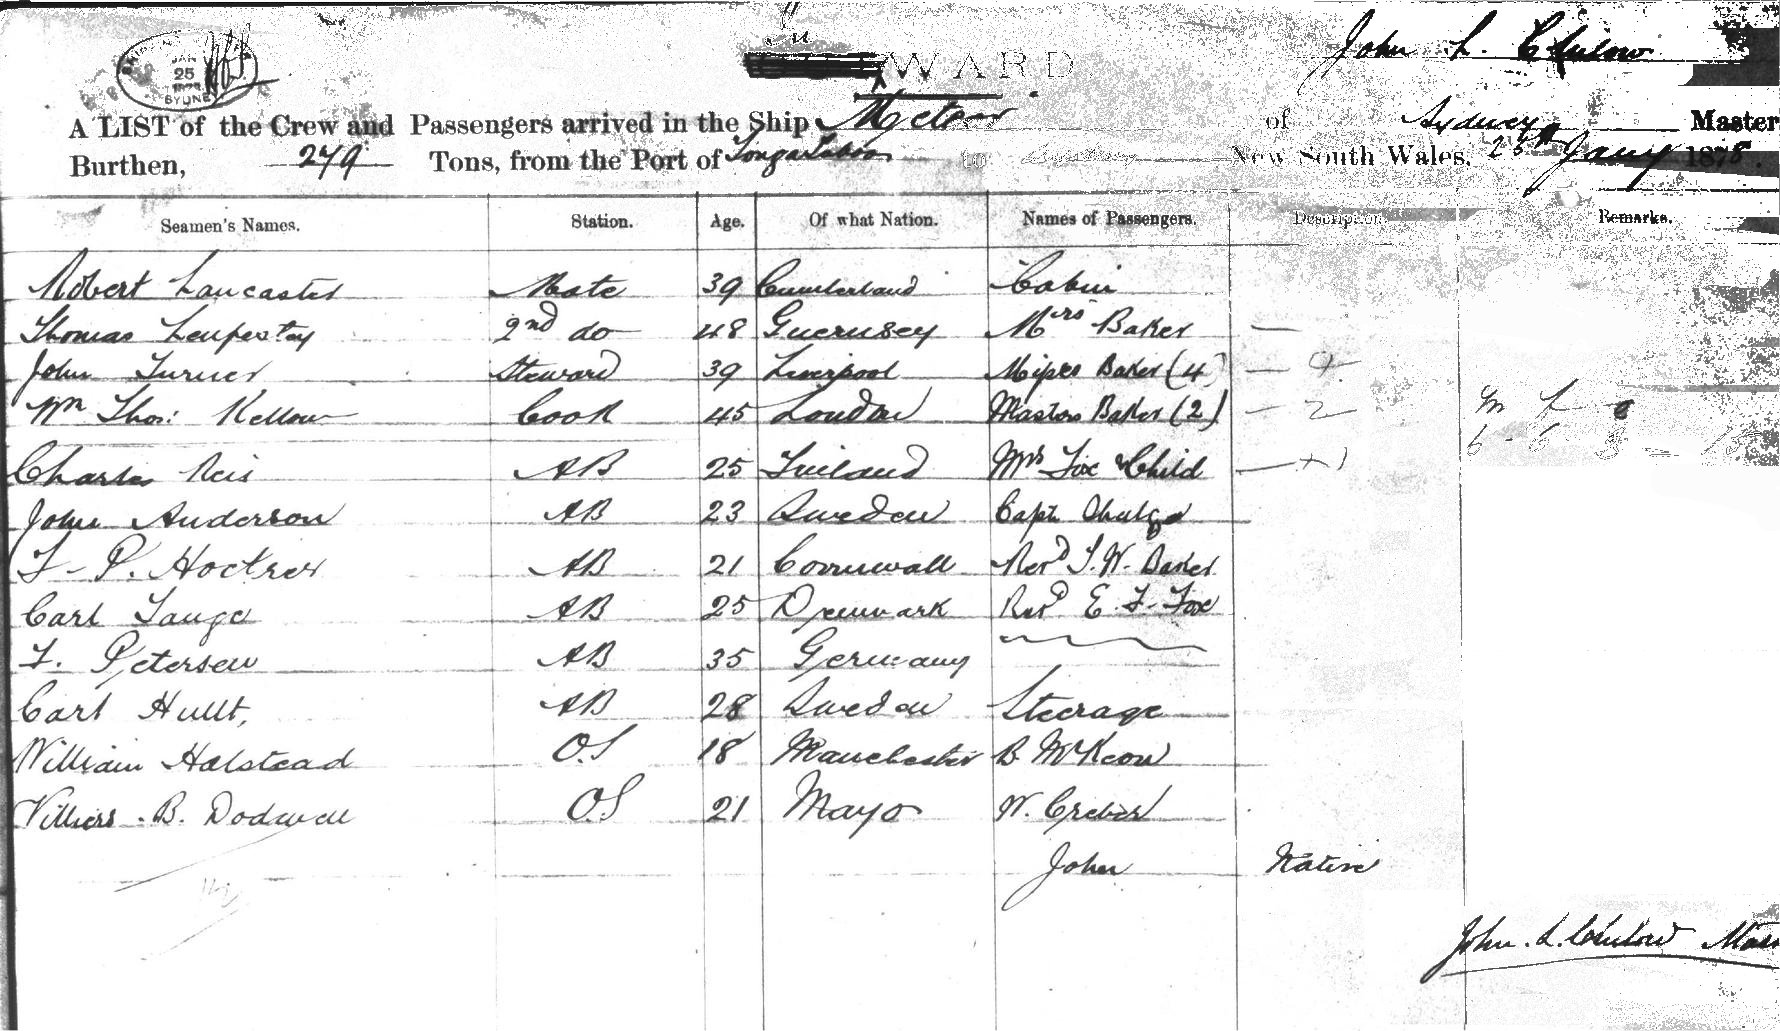 JAN
25
SYDNEY
WARD
John L.
A LIST of the Crew and Passengers arrived in the Ship Meteor of Sydney Master
Burthen, 279 Tons, from the Port of Tongatabou to New South Wales, 25th Jany 1878.
Seamen's Names. Station. Age. Of what Nation. Names of Passengers. Description Remarks.
Robert Lancaster Mate 39 Cumberland Cabin
Thomas 2nd do 48 Guernsey Mrs Baker —
John Turner Steward 39 Liverpool Misses Baker (4) — 4
Wm Thos: Kellow Cook 45 London Masters Baker (2) — 2
Charles Reis AB 25 Mrs Fox & Child — +1
John Anderson AB 23 Sweden Capt
P. AB 21 Cornwall Revd S. W. Baker
Carl Tauge AB 25 Denmark Revd E. F. Fox
Petersen AB 35 Germany
Carl Hullt, AB 28 Sweden Steerage
William Halstead OS 18 Manchester B McKeon
Villiers . B. Dodwell OS 21 Mayo W. Creber
John Native
John. L.